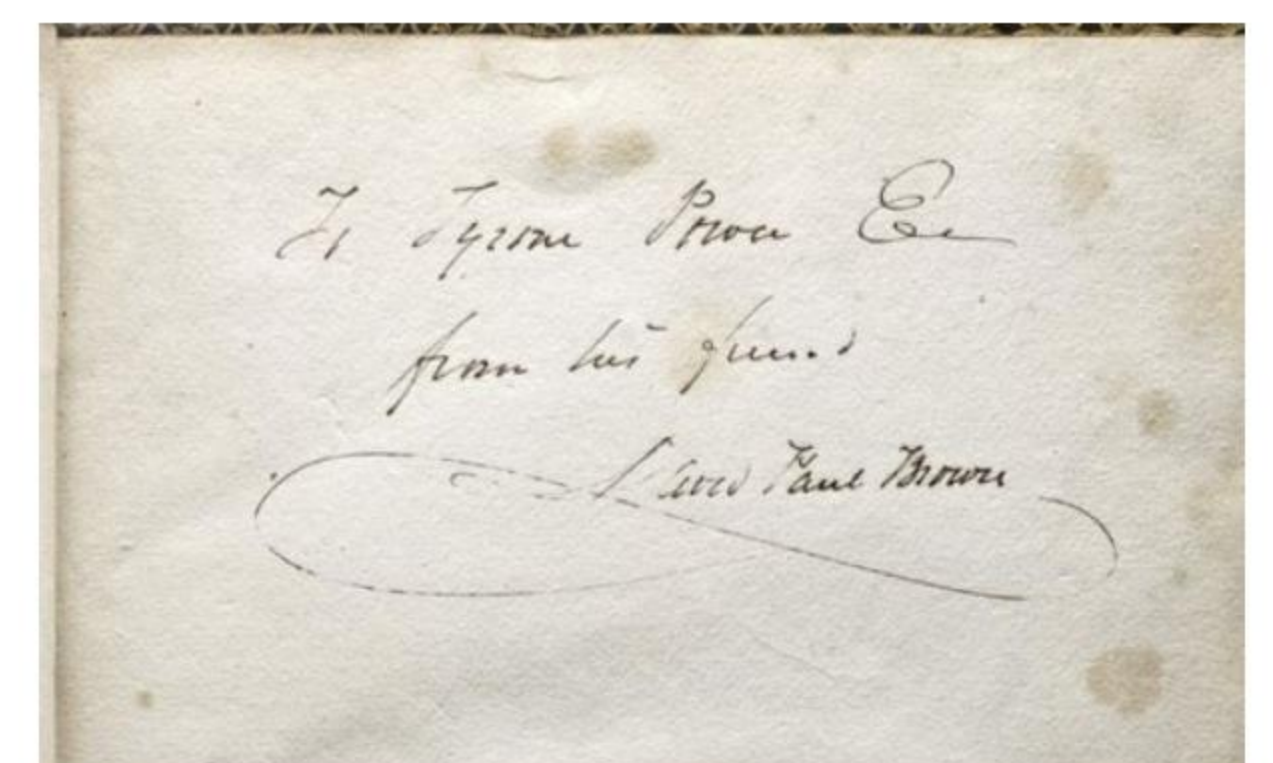 To Tyrone Power Esq
from his friend
David Paul Brown